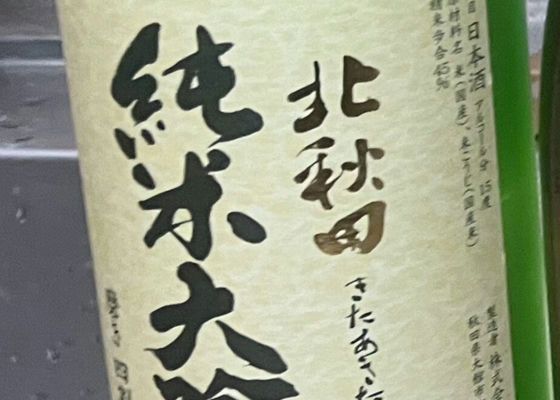 品目 日本酒 アルコール分 15度
原材料名 米(国産)、米こうじ(国産米)
精米歩合45%
製造者 株式会
秋田県大館市
北秋田
きたあきた
純米大吟